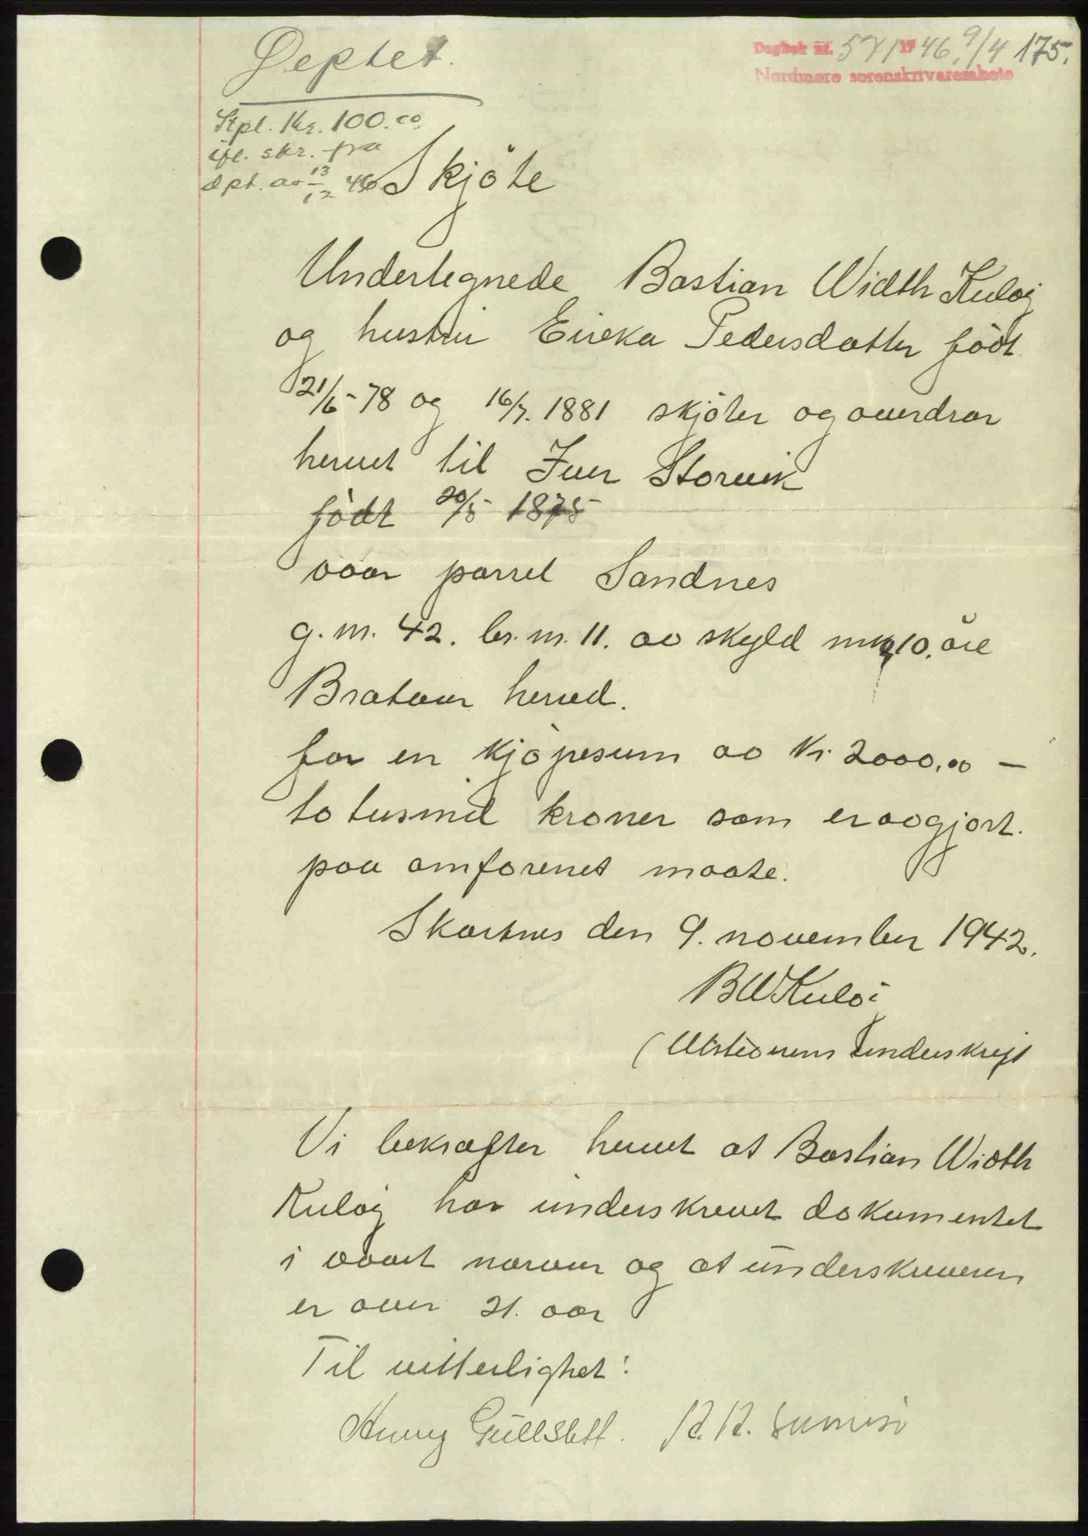 Deptet.
Dagbok nr. 571 1946, 9/4 175.
Nordmøre sorenskriverembete
Stpl. Kr. 100.00
ifl. skr. fra
dpt. av 13/12 46
Skjöte
Undertegnede Bastian Width Kuløj
og hustru Erika Pedersdatter födt
21/6-78 og 16/7. 1881 skjöter og overdrar
hervet til Iver Storvik
födt 20/5 1875
vaar parsel Sandnes
g. nr. 42. br. nr. 11. av skyld mrk 10. öre
Bratvær herred.
for en kjöpesum av Kr 2000,00 —
to tusind kroner som er avgjort.
paa omforenet maate.
Skartnes den 9. november 1942.
B W Kuløi
(Utstederens underskrift
Vi bekræfter hervet at Bastian Width
Kuløj har underskrevet dokumentet
i vaart nærvær og at underskriveren
er over 21. aar
Til vitterlighet:
Henry Gullstett. K. K.